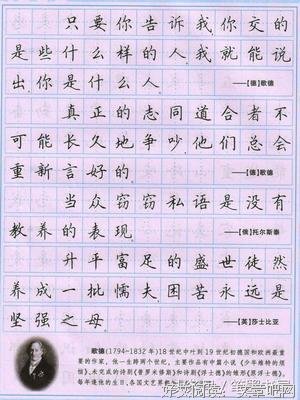 只要你告诉我,你交的
是些什么样的人,我就能说
出,你是什么人.
——[德]歌德
真正的志同道合者不
可能长久地争吵,他们总会
重新言好的.
——[德]歌德
当众窃窃私语是没有
教养的表现.
——[俄]托尔斯泰
升平富足的盛世徒然
养成一批懦夫,困苦永远是
坚强之母.
——[英]莎士比亚
歌德(1794-1832年)18世纪中叶到19世纪初德国和欧洲最重
要的作家。他一生跨两个世纪,主要作品有中篇小说《少年维特的烦
恼》,未完成的诗剧《普罗米修斯》和诗剧《浮士德》的雏形《原浮士德》,
每年逢他的生日,各国文艺界都